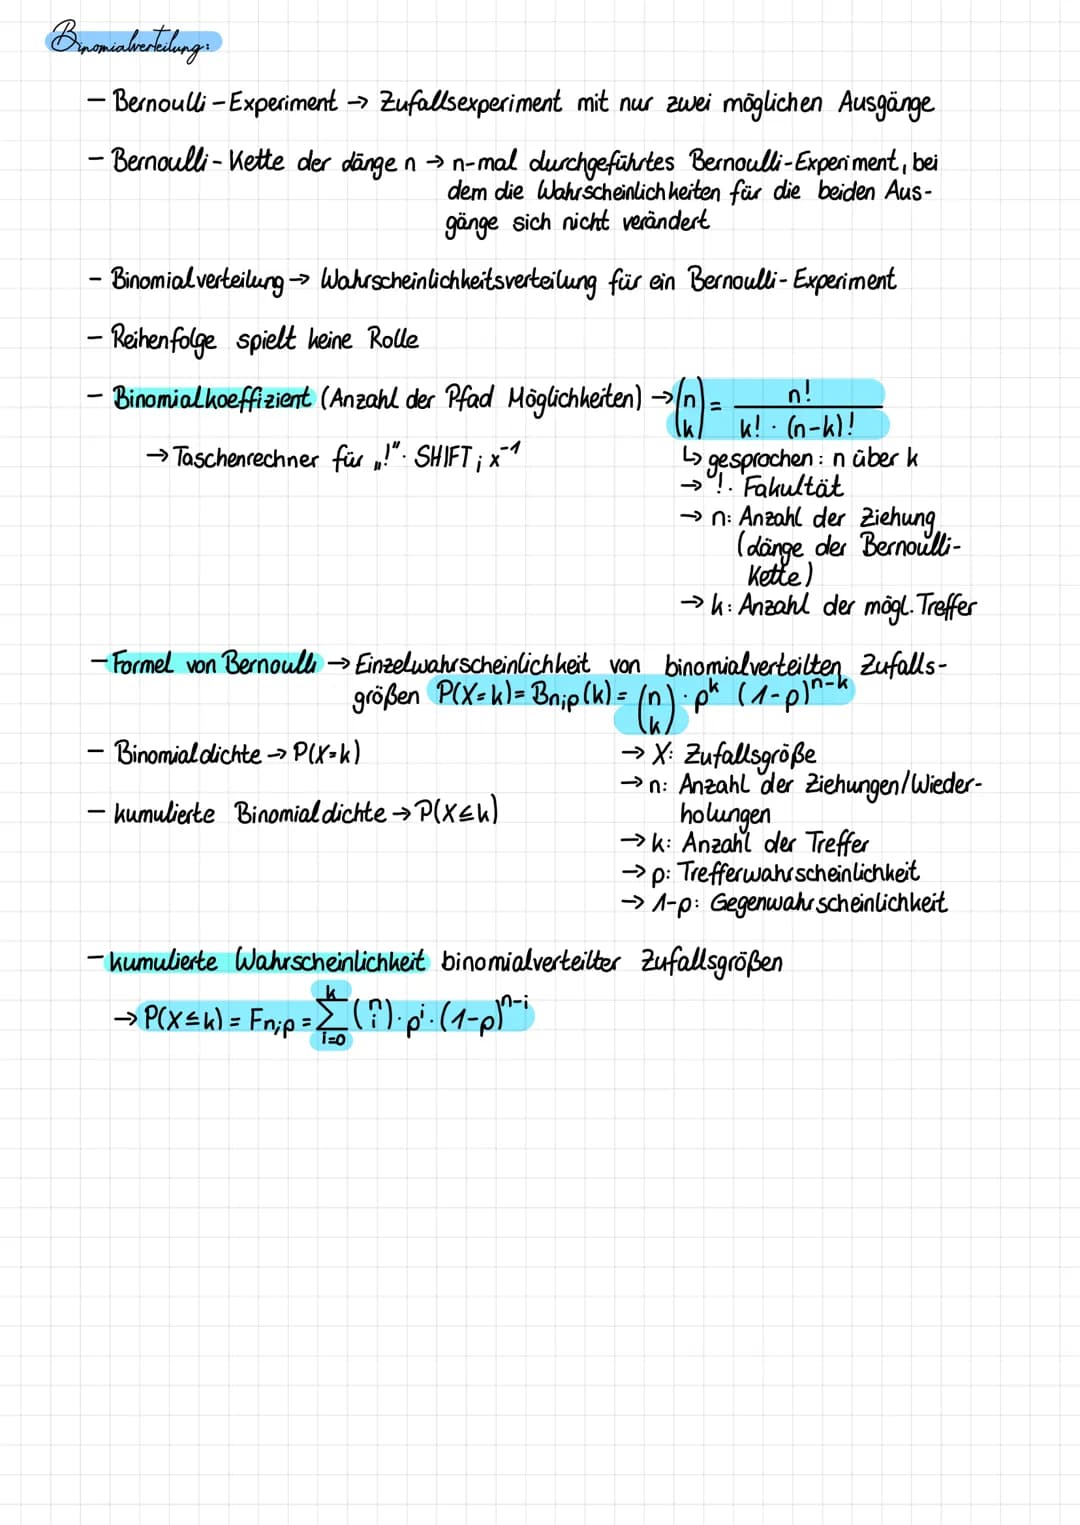 Binomialverteilung:
– Bernoulli-Experiment → Zufallsexperiment mit nur zwei möglichen Ausgänge
– Bernoulli-Kette der dänge n → n-mal durchgeführtes Bernoulli-Experiment, bei
dem die Wahrscheinlichkeiten für die beiden Aus-
gänge sich nicht verändert
– Binomialverteilung → Wahrscheinlichkeitsverteilung für ein Bernoulli-Experiment
– Reihenfolge spielt keine Rolle
– Binomialkoeffizient (Anzahl der Pfad Möglichkeiten) → (n k) = n! / k! · (n-k)!
→ Taschenrechner für „!": SHIFT ; x⁻¹
↳ gesprochen: n über k
→ !: Fakultät
→ n: Anzahl der Ziehung
(dänge der Bernoulli-
Kette)
→ k: Anzahl der mögl. Treffer
– Formel von Bernoulli → Einzelwahrscheinlichkeit von binomialverteilten Zufalls-
größen P(X=k) = Bn;p(k) = (n k) · p^k (1-p)^n-k
– Binomialdichte → P(X=k)
– kumulierte Binomialdichte → P(X≤k)
→ X: Zufallsgröße
→ n: Anzahl der Ziehungen/Wieder-
holungen
→ k: Anzahl der Treffer
→ p: Trefferwahrscheinlichkeit
→ 1-p: Gegenwahrscheinlichkeit
– kumulierte Wahrscheinlichkeit binomialverteilter Zufallsgrößen
→ P(X≤k) = Fn;p = k Σ i=0 (n i) · p^i · (1-p)^n-i